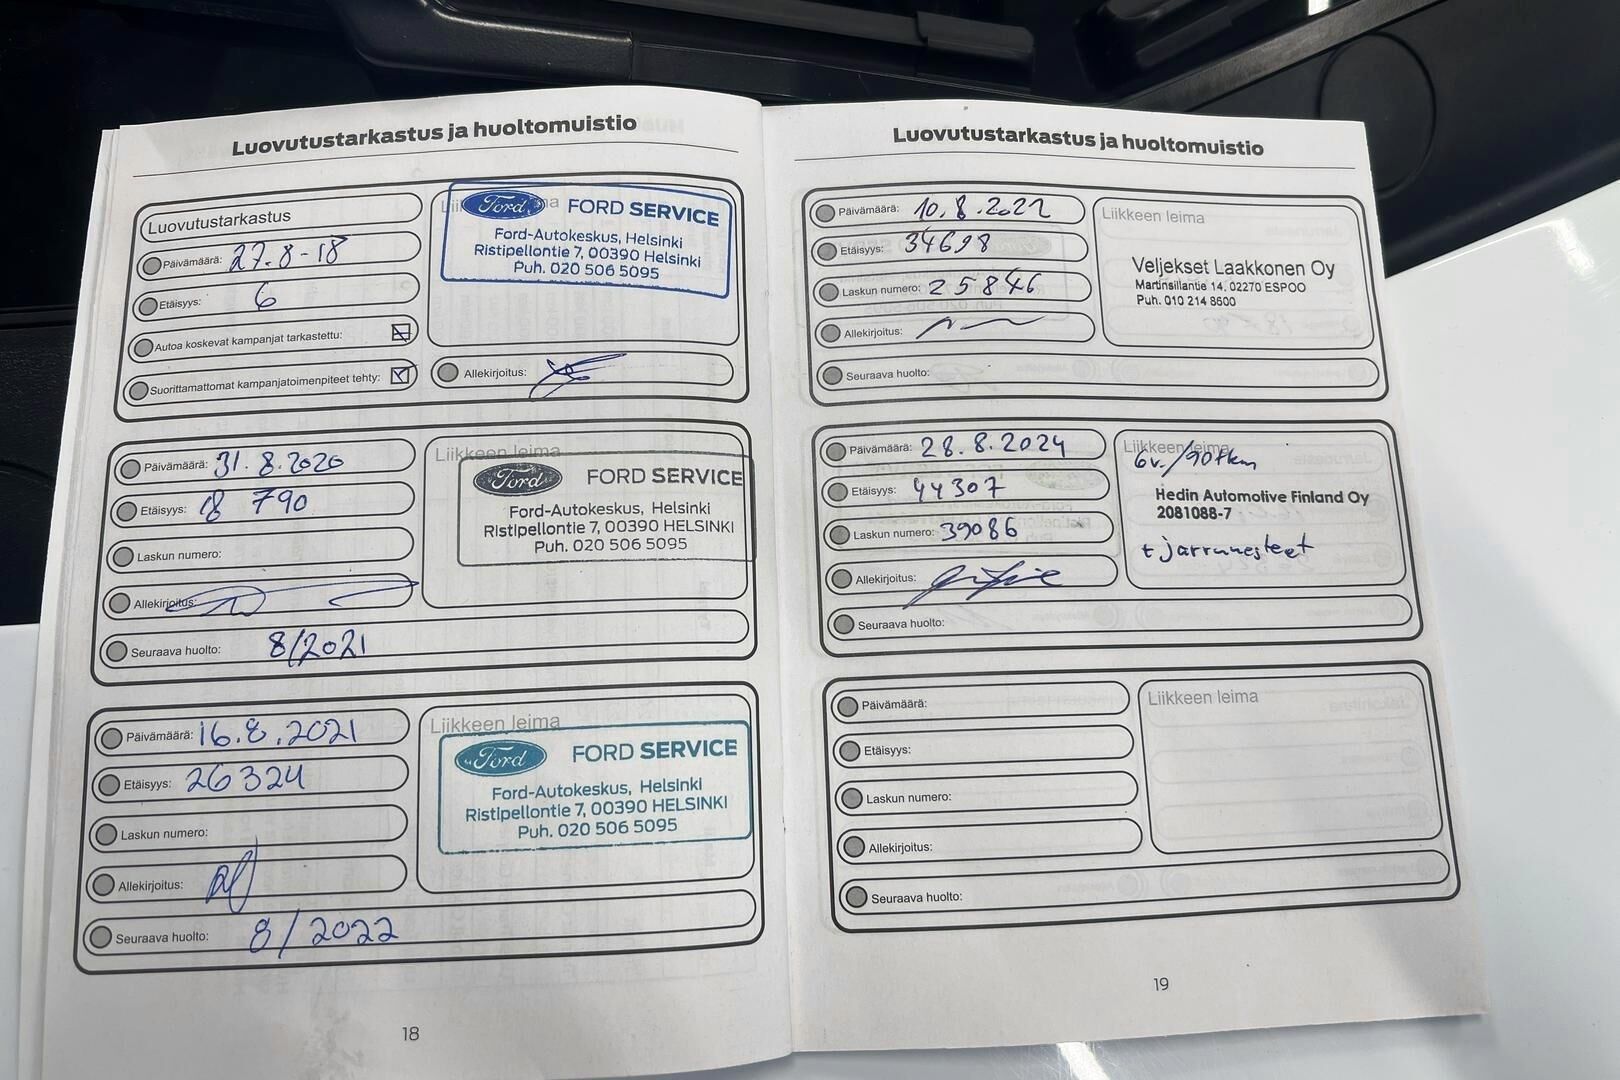 Luovutustarkastus ja huoltomuistio
Luovutustarkastus
Päivämäärä: 27.8-18
Etäisyys: 6
Autoa koskevat kampanjat tarkastettu:
Suorittamattomat kampanjatoimenpiteet tehty:
Ford FORD SERVICE
Ford-Autokeskus, Helsinki
Ristipellontie 7, 00390 Helsinki
Puh. 020 506 5095
Allekirjoitus:
Päivämäärä: 31.8.2020
Etäisyys: 18 790
Laskun numero:
Allekirjoitus:
Seuraava huolto: 8/2021
Liikkeen leima
Ford FORD SERVICE
Ford-Autokeskus, Helsinki
Ristipellontie 7, 00390 HELSINKI
Puh. 020 506 5095
Päivämäärä: 16.8.2021
Etäisyys: 26324
Laskun numero:
Allekirjoitus:
Seuraava huolto: 8/2022
Liikkeen leima
Ford FORD SERVICE
Ford-Autokeskus, Helsinki
Ristipellontie 7, 00390 HELSINKI
Puh. 020 506 5095
18
Luovutustarkastus ja huoltomuistio
Päivämäärä: 10.8.2022
Etäisyys: 34698
Laskun numero: 25846
Allekirjoitus:
Seuraava huolto:
Liikkeen leima
Veljekset Laakkonen Oy
Martinsillantie 14, 02270 ESPOO
Puh. 010 214 8600
Päivämäärä: 28.8.2024
Etäisyys: 44307
Laskun numero: 39086
Allekirjoitus:
Seuraava huolto:
Liikkeen leima
6v./90tkm
Hedin Automotive Finland Oy
2081088-7
+ jarrunesteet
Päivämäärä:
Etäisyys:
Laskun numero:
Allekirjoitus:
Seuraava huolto:
Liikkeen leima
19